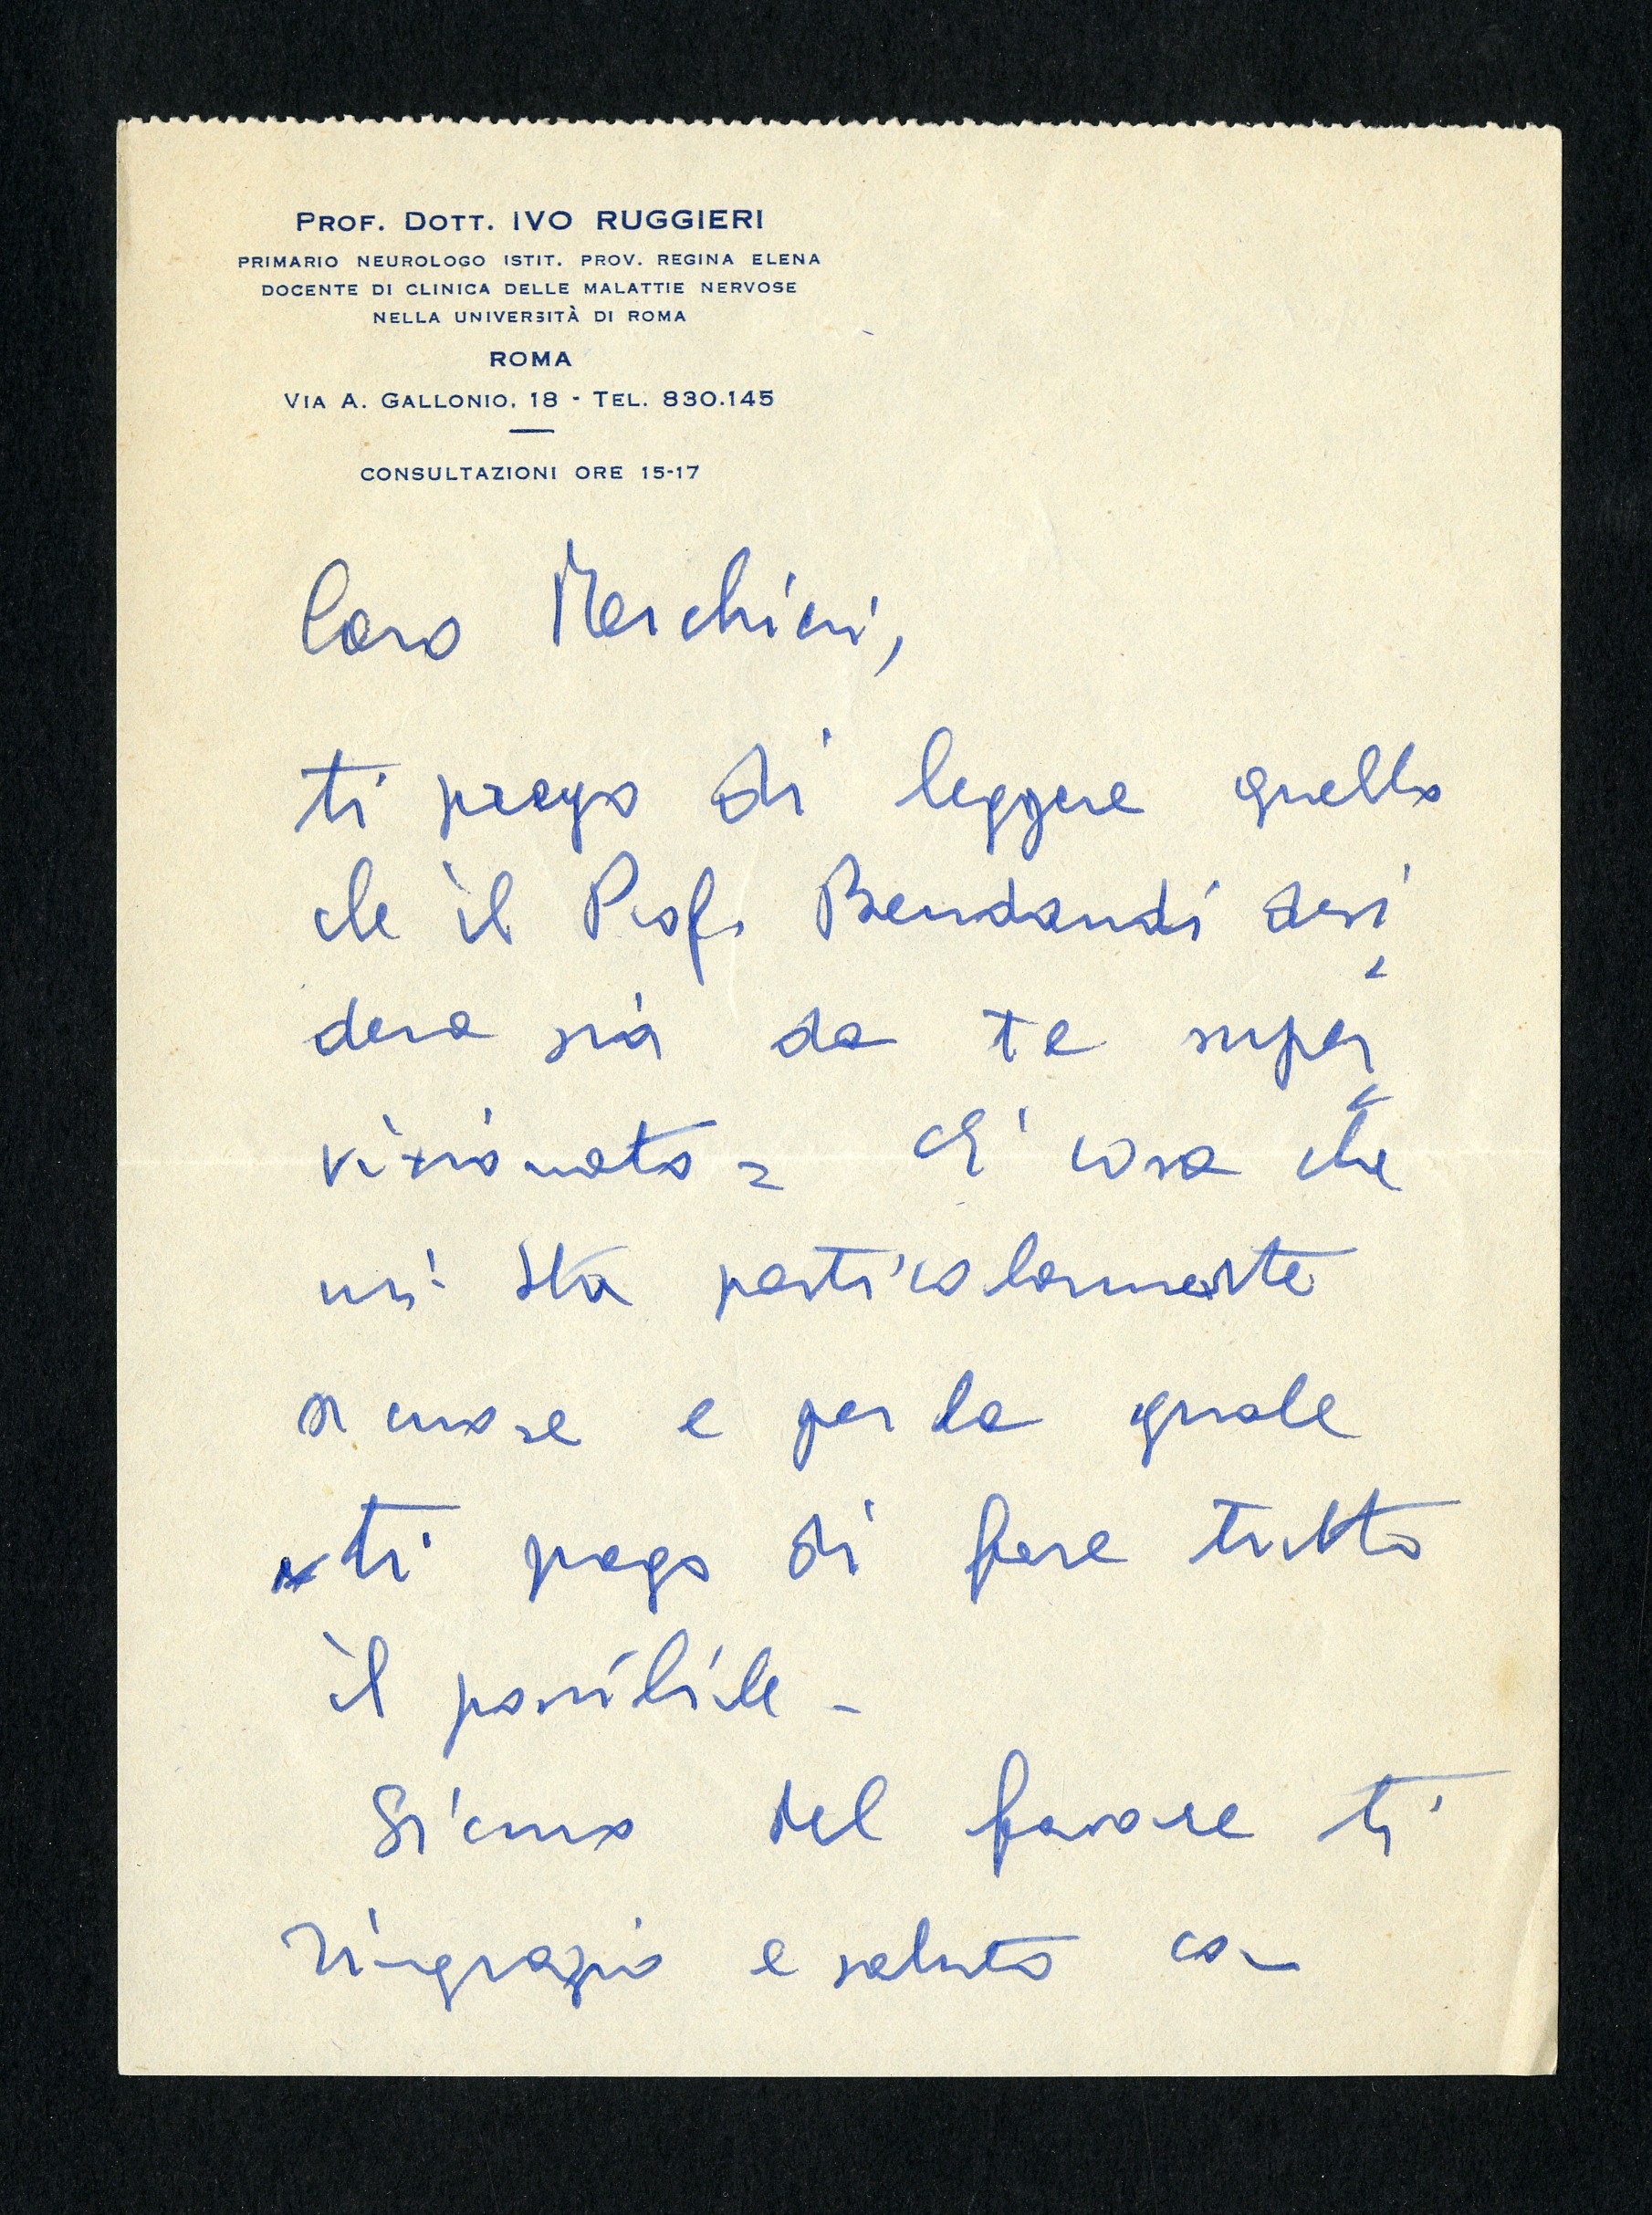 PROF. DOTT. IVO RUGGIERI
PRIMARIO NEUROLOGO ISTIT. PROV. REGINA ELENA
DOCENTE DI CLINICA DELLE MALATTIE NERVOSE
NELLA UNIVERSITÀ DI ROMA
ROMA
VIA A. GALLONIO, 18 - TEL. 830.145
CONSULTAZIONI ORE 15-17
Caro Marchini,
ti prego di leggere quello
che il Prof. Bendandi desi
dera sia da te super
visionato = È cosa che
mi sta particolarmente
a cuore e per la quale
ti prego di fare tutto
il possibile -
Sicuro del favore ti
ringrazio e saluto con